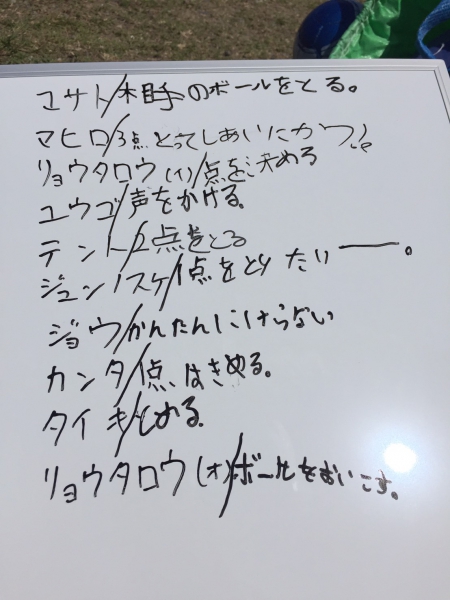 マサト/相手のボールをとる。
マヒロ/3点とってしあいにかつ!
リョウタロウ(イ)/点を決める
ユウゴ/声をかける。
テント/2点をとる
ジュンノスケ/1点をとりたいー。
ジョウ/かんたんにけらない
カンタ/1点はきめる。
タイキ/しめる。
リョウタロウ(オ)/ボールをおいこす。